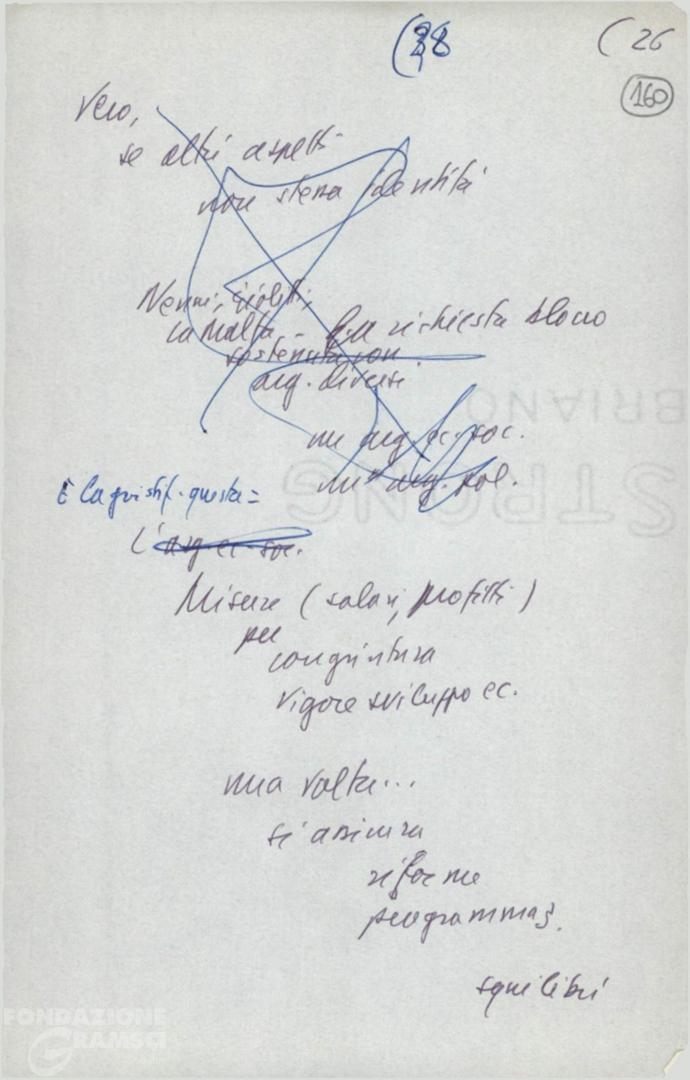 (38
( 26
160
Vero,
se altri aspetti
non stessa identità
Nenni, Giolitti,
La Malfa - richiesta blocco
sostenuta con
arg. diversi.
un arg. ec. soc.
un arg. pol.
È la giustif. questa =
L'arg. ec-soc.
Misure (salari, profitti)
per
congiuntura
vigore sviluppo ec.
una volta...
si assicura
riforme
programmaz.
squilibri
BRIANO
STRONG
FONDAZIONE
GRAMSCI